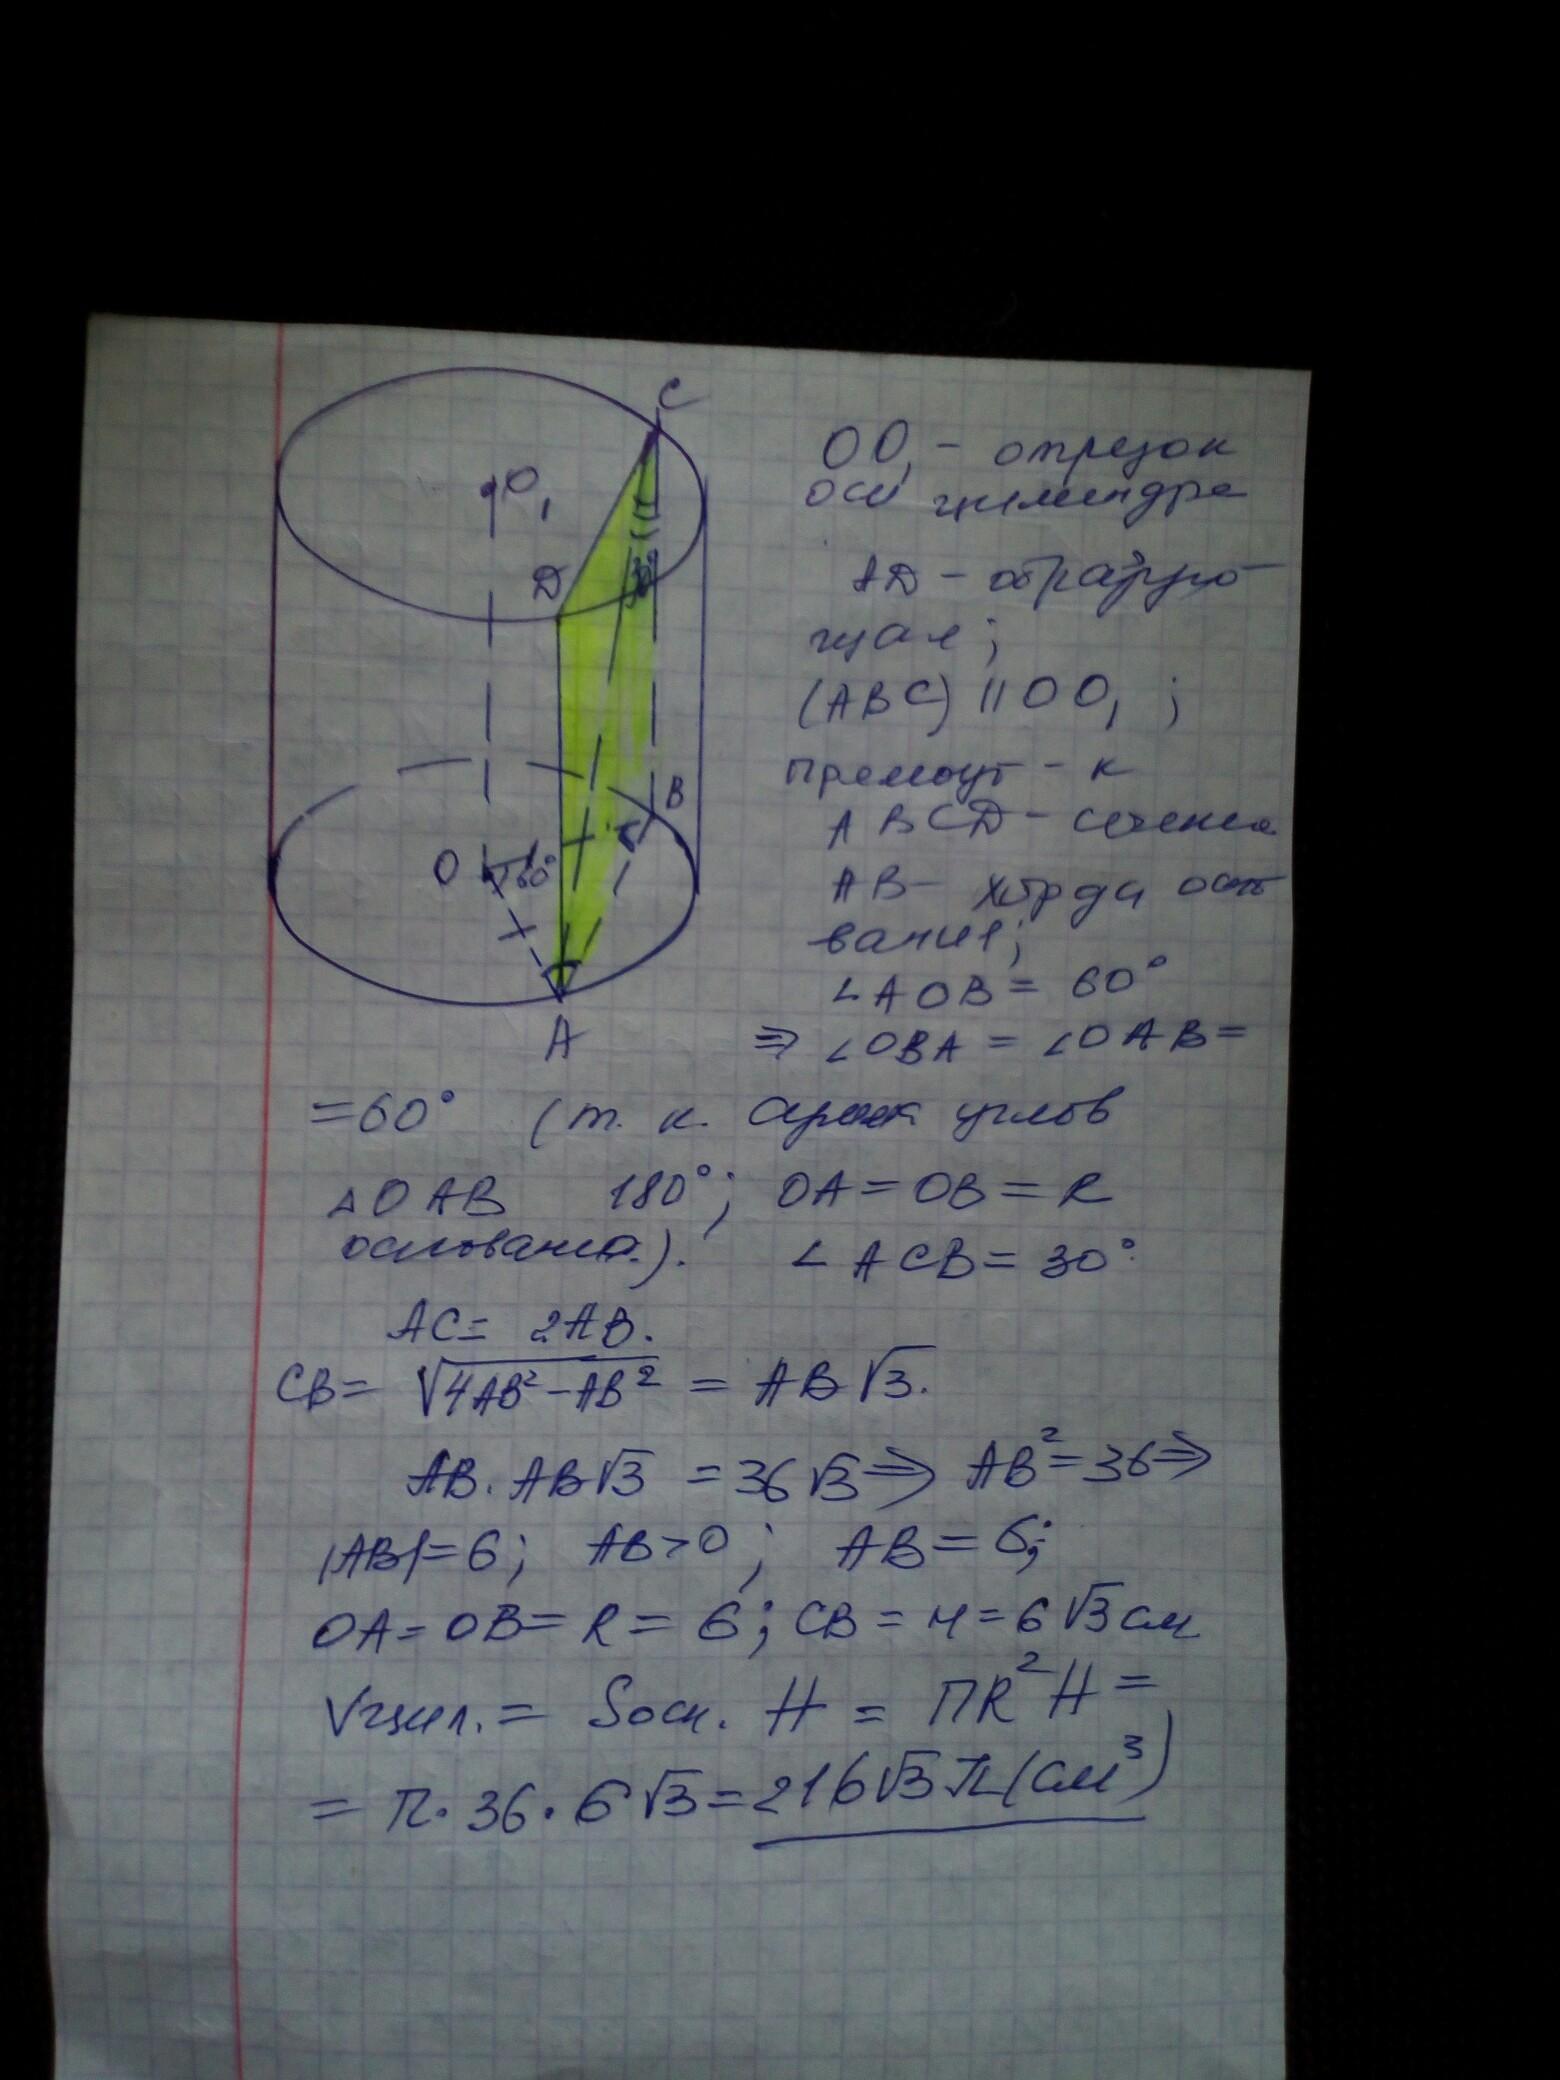 C
O₁
D
30°
B
O
60°
A
OO₁ - отрезок
оси цилиндра
AD - образую-
щая;
(ABC) || OO₁ ;
Прямоуг-к
ABCD - сечение
AB - хорда осно
вания;
∠AOB = 60°
⇒ ∠OBA = ∠OAB =
= 60° (т. к. сумма углов
△OAB 180°; OA = OB = R
основания.). ∠ACB = 30°.
AC = 2AB.
CB = √(4AB² - AB²) = AB√3.
AB · AB√3 = 36√3 ⇒ AB² = 36 ⇒
|AB| = 6; AB > 0; AB = 6;
OA = OB = R = 6; CB = H = 6√3 см
Vцил. = Sосн. H = ПR²H =
= π · 36 · 6√3 = 216√3 π (см³)